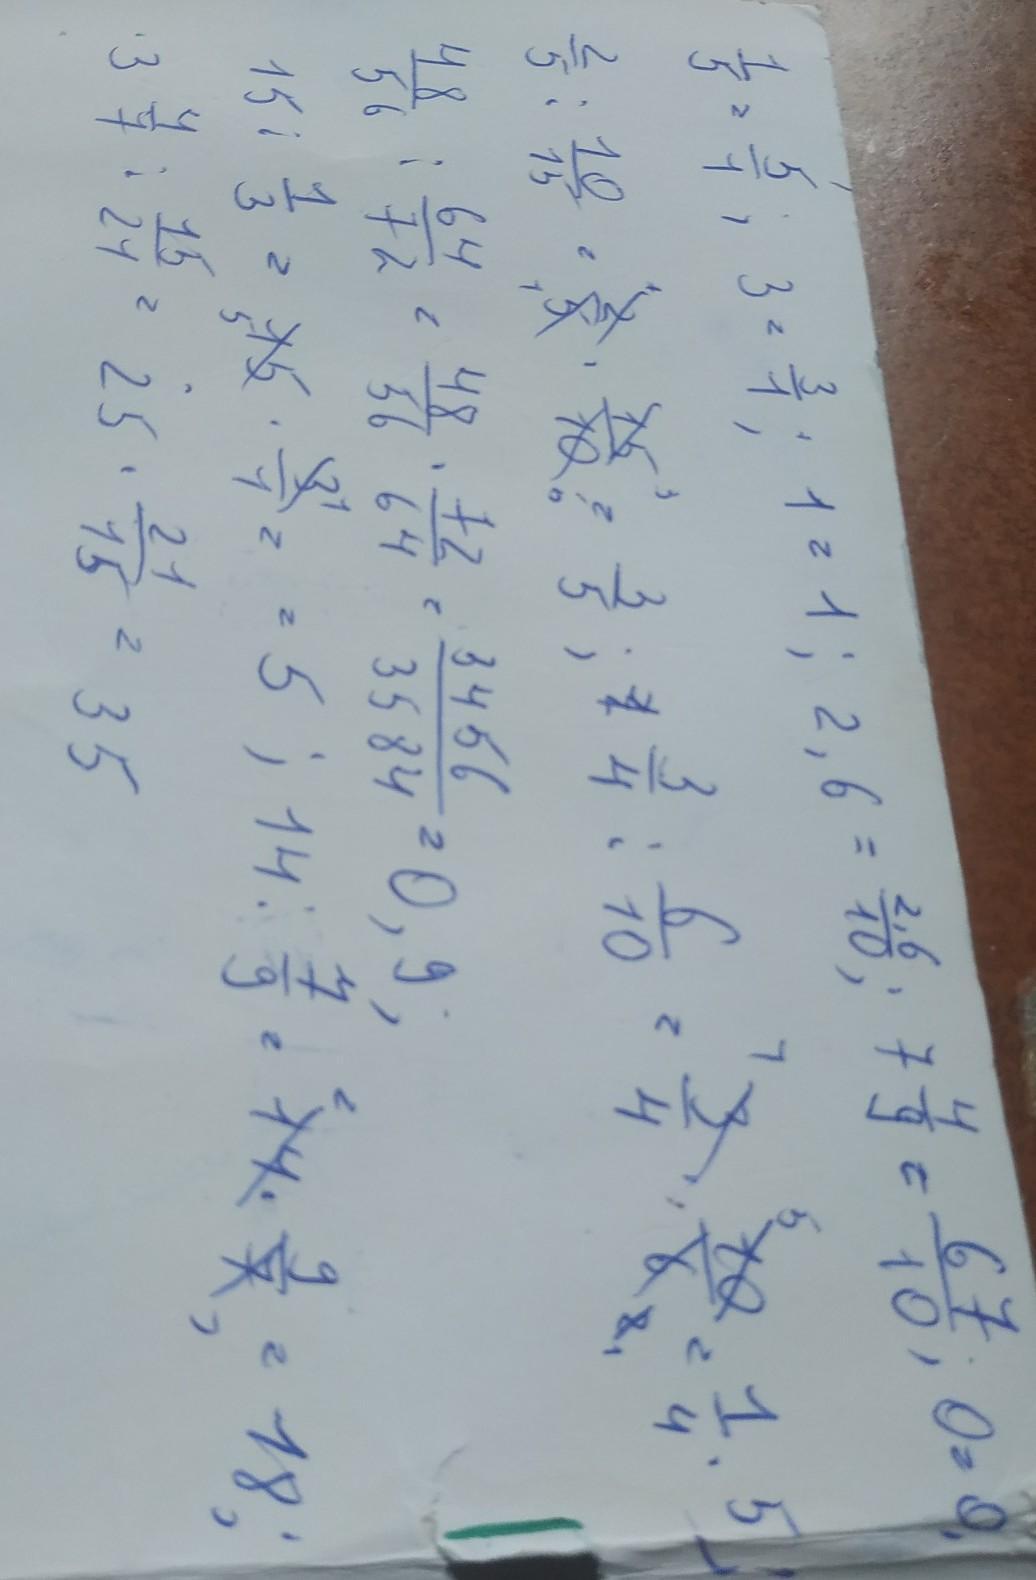 1/5 = 5/1; 3 = 3/1; 1 = 1; 2,6 = 2,6/10; 7 4/9 = 67/10; 0 = 0.
2/5 : 10/15 = 2/5 · 15/10 = 3/5; 3/4 : 6/10 = 3/4 · 10/6 = 1/4 · 5
48/56 : 64/72 = 48/56 · 72/64 = 3456/3584 = 0,9;
15 : 1/3 = 15 · 3/1 = = 5; 14 : 7/9 = 14 · 9/7 = 18;
3 4/7 : 15/21 = 25 · 21/15 = 35